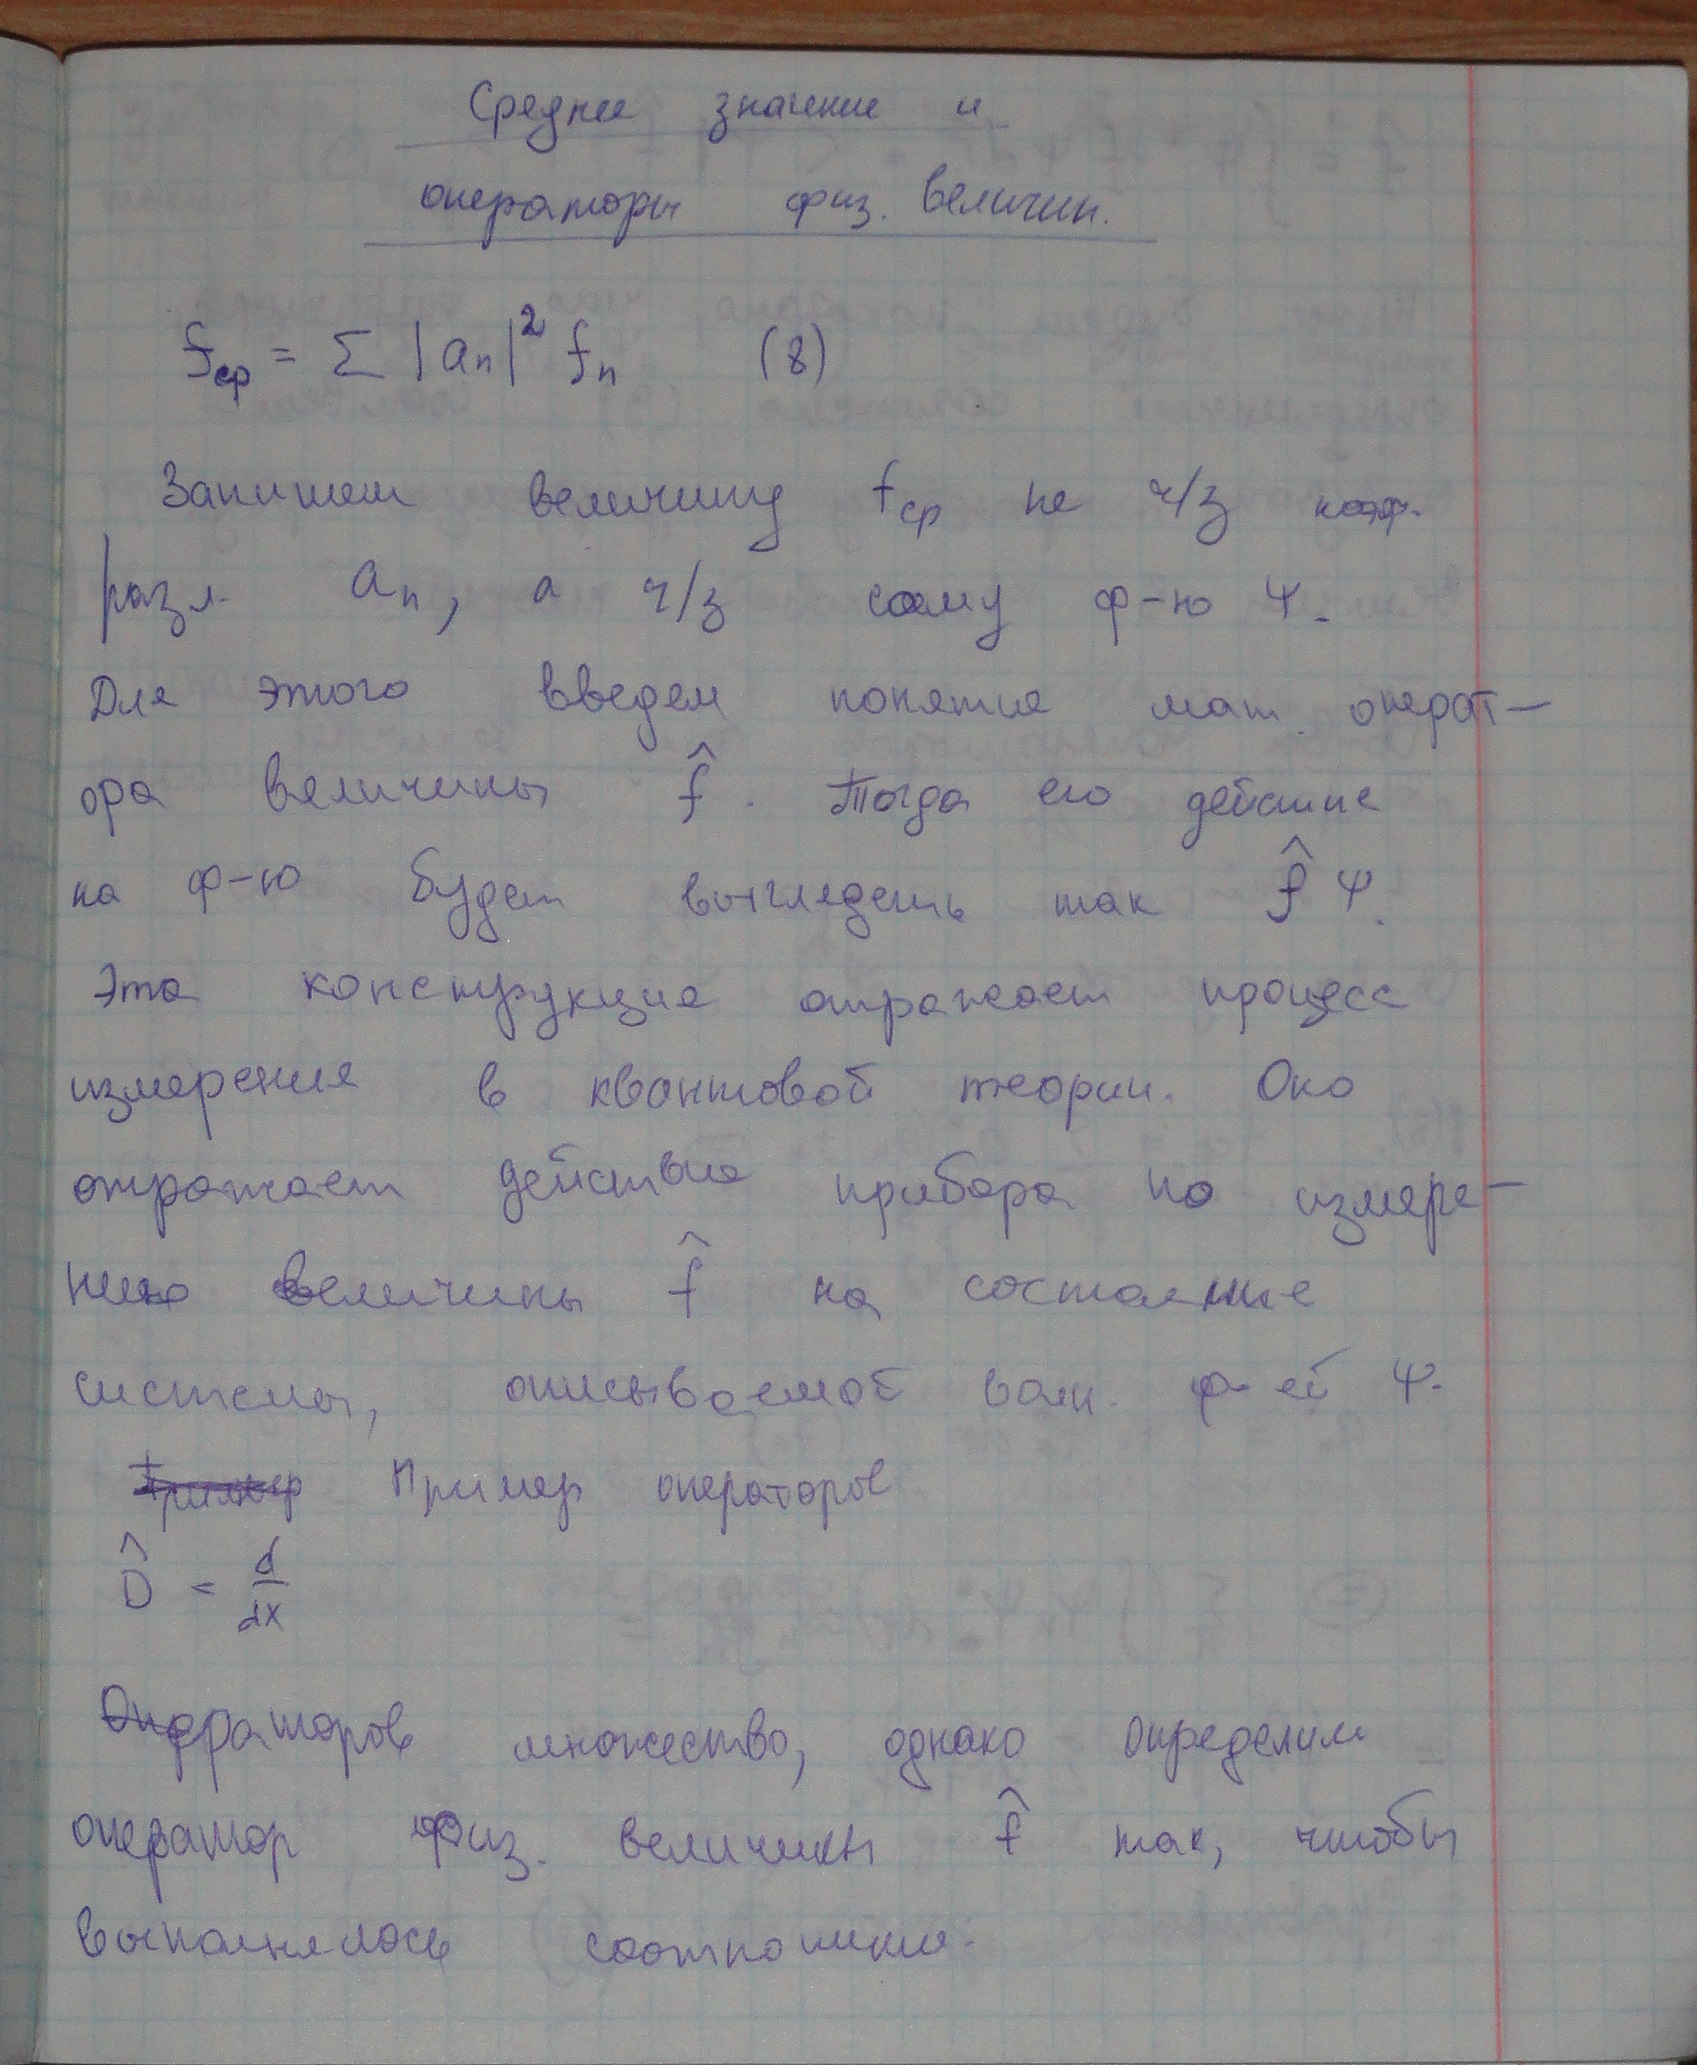 Среднее значение и
операторы физ. величин.
f_ср = Σ |a_n|² f_n (8)
Запишем величину f_ср не ч/з коэф.
разл. a_n, а ч/з саму ф-ю Ψ.
Для этого введем понятие мат. операт-
ора величины f̂. Тогда его действие
на ф-ю будет выглядеть так f̂ Ψ.
Эта конструкция отражает процесс
измерения в квантовой теории. Она
отражает действие прибора по измере-
нию величины f̂ на состояние
системы, описываемой волн. ф-ей Ψ.
Пример операторов
D̂ = d/dx
Операторов множество, однако определим
оператор физ. величины f̂ так, чтобы
выполнялось соотношение: